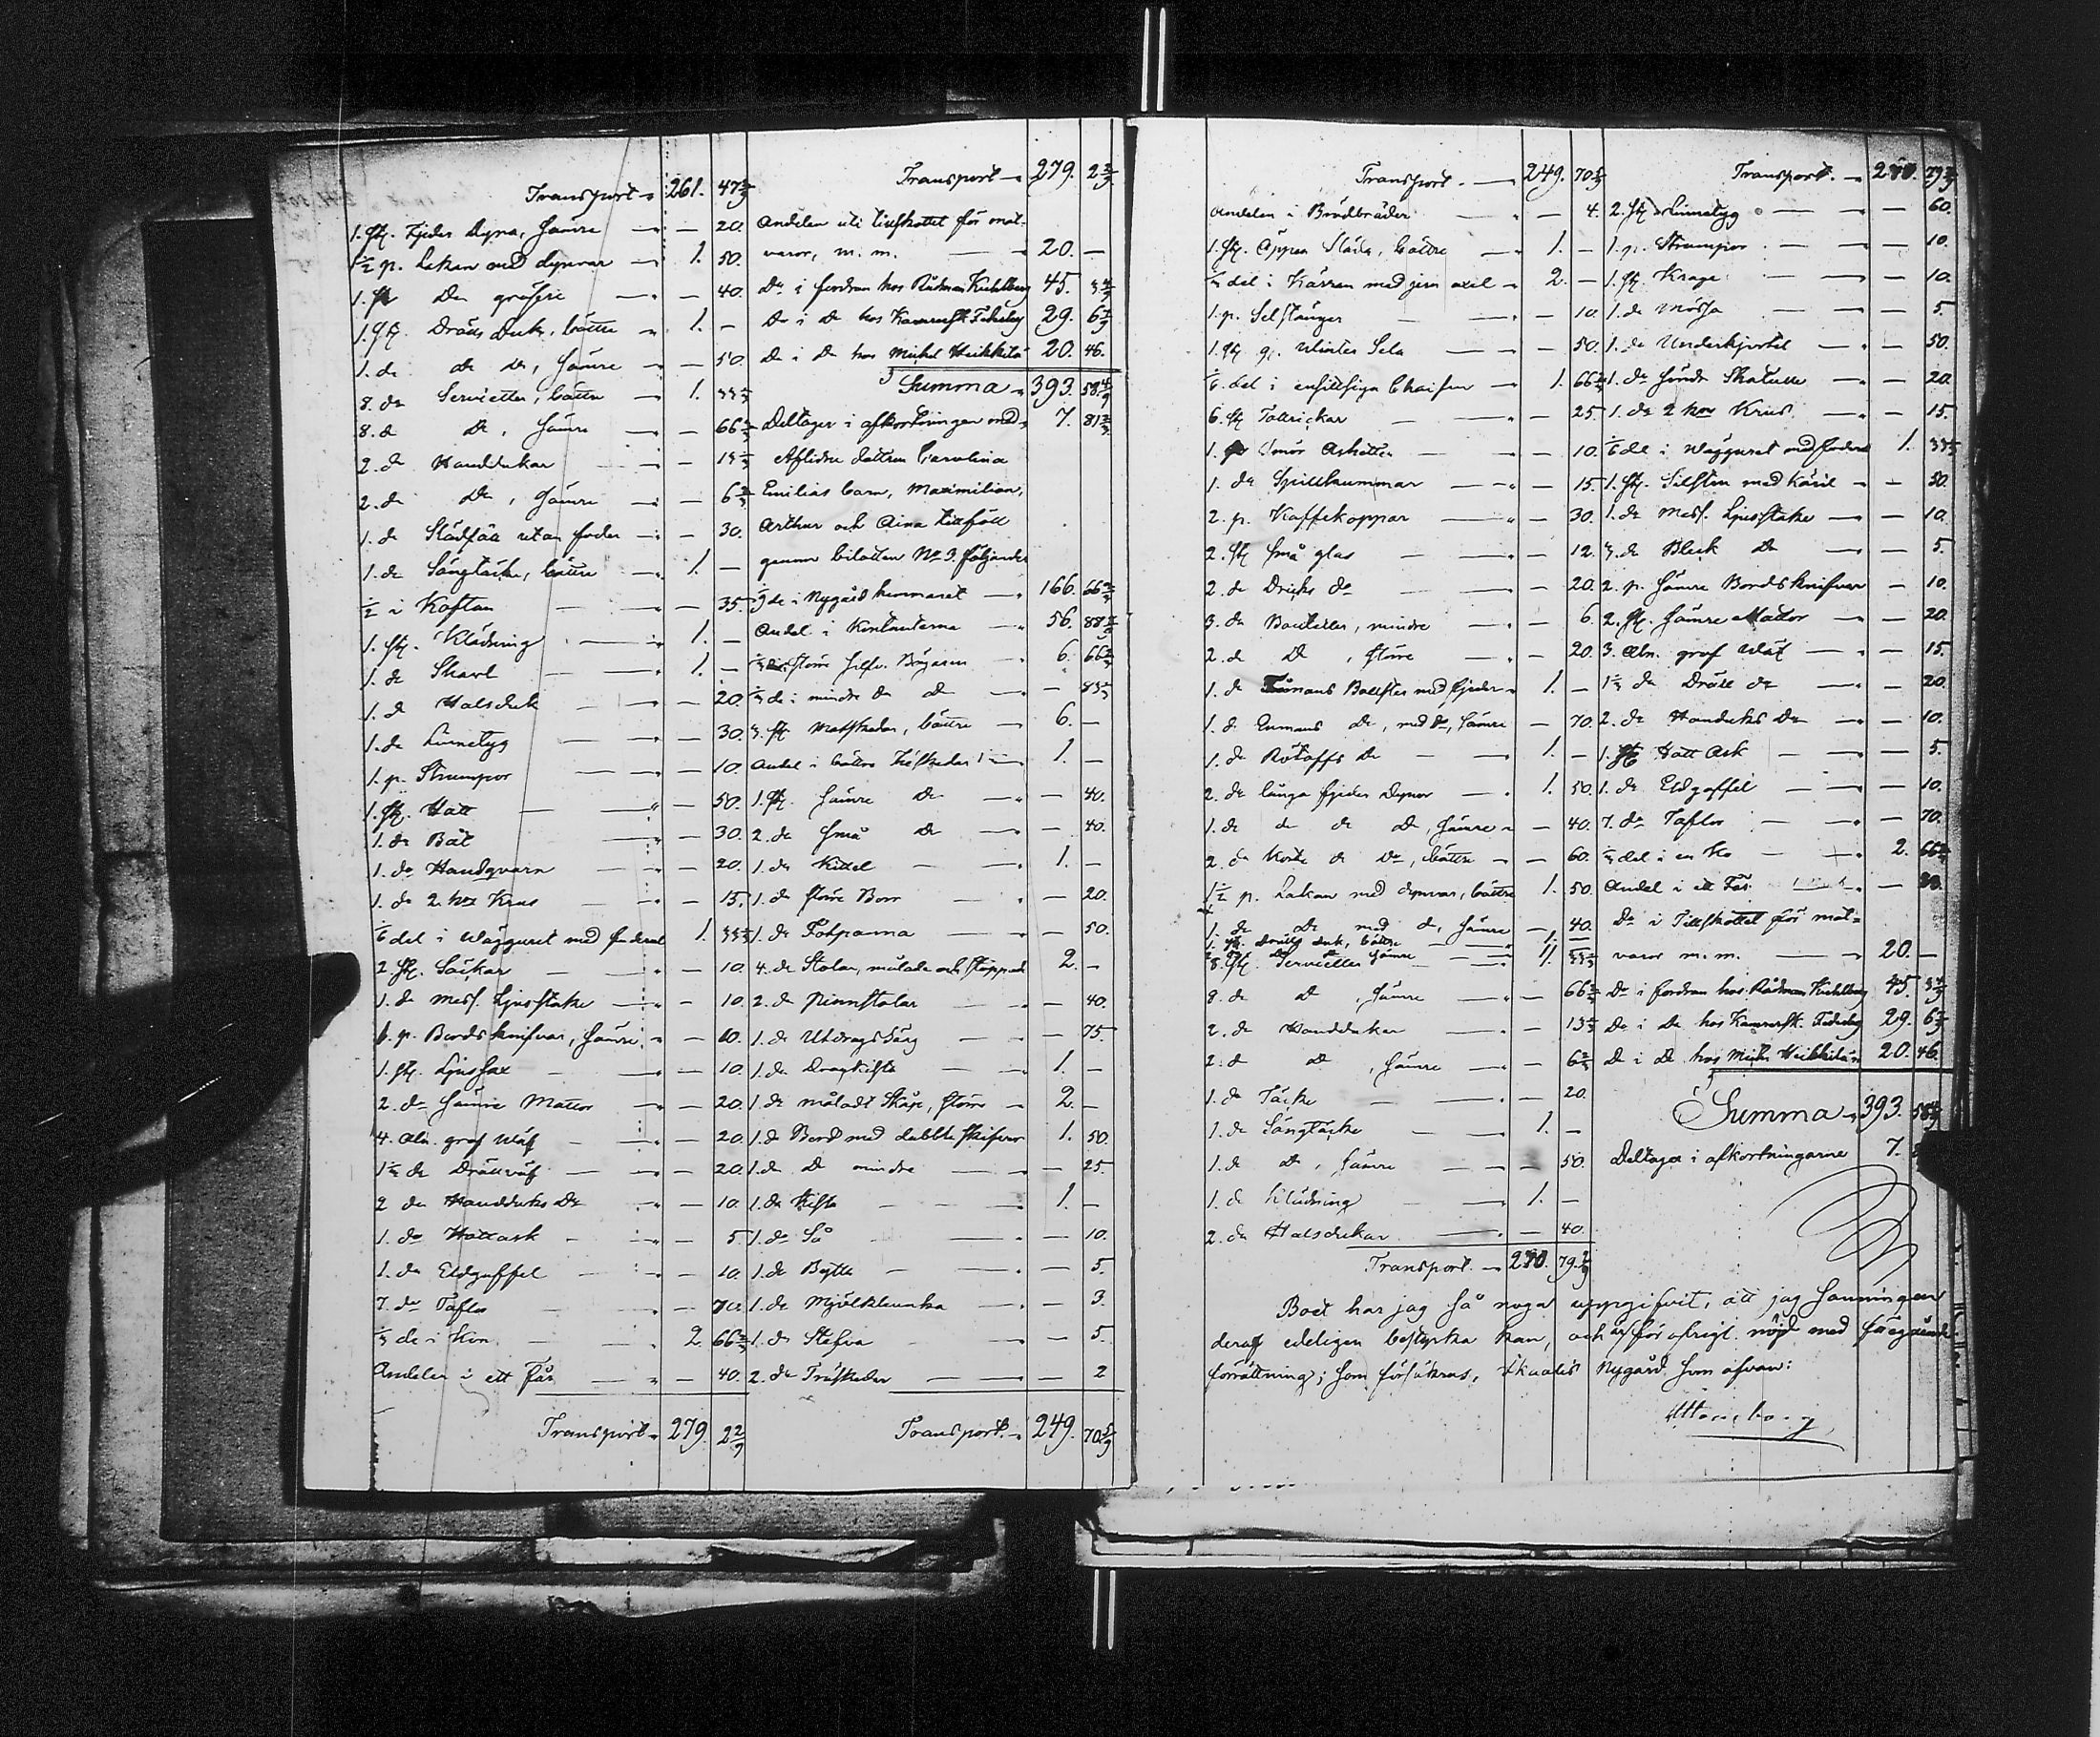 Transport 261. 47 2/9
1. st. Fjeder Dyna, sämre — 20.
1 1/2 p. Lakan med dynvar 1. 50.
1. st. Do gröfre — 40.
1. st. Drälls Duk, bättre 1. —
1. do do do, sämre — 50
8. do Servietter, bättre 1. 33 1/3
8. do Do, sämre — 66 2/3
2. do Handdukar — 13 1/3
2. do Do, sämre — 6 2/3
1. do Slädfäll utan foder — 30.
1. do Sängtäcke, bättre 1. —
1/2 i Kaftan — 35.
1. st. Klädning 1. —
1. do Shavl 1. —
1. do Halsduk — 20.
1. do Linnetyg — 30.
1. p. Strumpor — 10.
1. st. Hatt — 50.
1. do Båt — 30.
1. do Handqvarn — 20.
1. do 2. Krus — 15.
1/6 del i Wägguret med foderal 1. 33 1/3
2 st. Säckar — 10.
1. do mess. Ljusstake — 10.
6. p. Bordsknifvar, sämre — 60.
1. st. Ljussax — 10.
2. do sämre Mattor — 20.
4. aln. grof Wäf — 20.
1 1/2 do Drällväf — 20.
2 do Handduks Do — 10.
1. do Hattask — 5
1. do Eldgaffel — 10.
7. do Taflor — 70.
1/3 de i Kon 2. 66 2/3
Andelen i ett Får — 40.
Transport 279. 2 2/9
Transport 279. 2 2/9
Andelen uti tillskottet för mat-
varor, m. m. 20. —
Do i fordran hos Rådman 45. 3 4/9
Do i Do hos 29. 6 2/3
Do i Do hos Michel Heikkilä 20. 46.
Summa 393. 58 4/9
Deltager i afkortningen med 7. 81 2/3
Aflidne dottren Carolina
Emilias barn, Maximilian,
Arthur och Aina tillföll
genom bilotten No 3. följande
1/9 de i Nygård hemmanet 166. 66 2/3
Andel i Kontanterna 56. 88
större silfv. Bägaren 6. 66 2/3
1/3 de i mindre do Do — 83 1/3
3. st. Matskedar, bättre 6. —
Andel i bättre Théskedar 1. —
1. st. sämre Do — 40.
2. do små Do — 40.
1. do Kittel 1. —
1. do större Borr — 20.
1. do Fotpanna — 50.
4. do Stolar, målade och stoppade 2. —
2. do Pinnstolar — 40.
1. do Utdragssäng — 75
1. do Dragkista 1. —
1. do måladt Skåp, större 2. —
1. do Bord med dubbla skifvor 1. 50.
1. do Do mindre — 25
1. do Kista 1. —
1. do Så — 10.
1. do Bytta — 5.
1. do Mjölk — 3.
1. do Stäfva — 5.
2. do Träskedar — 2
Transport. 249. 70 5/9
Transport. 249. 70 5/9
Andelen i Brödbräder — 4.
1. st. Öppen Släda, bättre 1. —
1/3 del i Kärran med jern axel 2. —
1. p. Selstänger — 10
1. st. gl. Winter Sela — 50.
1/6 del i ensittsiga Chaisen 1. 66 2/3
6. st. Tallrickar — 25
1. Smör Asketten — 10.
1. do Spillkummar — 15.
2. p. Kaffekoppar — 30.
2. st. små glas — 12.
2. do Dricks do — 20.
3. do Bouteiller, mindre — 6.
2. do Do, större — 20.
1. do Tåmans Bolster med fjeder 1. —
1. do Enmans do, med do, sämre — 70.
1. do Do 1. —
2. do långa fjeder dynor 1. 50.
1. do do do Do, sämre — 40.
2. do korta do Do, bättre — 60.
1 1/2 p. Lakan med dynvar, bättre 1. 50.
1. do Do med do, sämre — 40.
1. st. Drälls duk, bättre 1. —
do do sämre
8. st. Servietter 1. 33 1/3
8. do Do, sämre — 66 2/3
2. do Handdukar — 13 1/3
2. do Do, sämre — 6 2/3
1. do Täcke — 20.
1. do Sängtäcke 1. —
1. do Do, sämre — 50.
1. do Klädning 1. —
2. do Halsdukar — 40.
Transport. 270. 79 2/9
Transport. 270. 79 2/9
2. st. Linnetyg — 60.
1. p. Strumpor — 10.
1. st. Krage — 10.
1. do Mössa — 5.
1. do Underkjortel — 50.
1. do sönder Skatull — 20.
1. do 2 Krus — 15.
1/6 del i Wägguret med foderal 1. 33 1/3
1. st. Silsten med Käril — 30.
1. do mess. Ljusstake — 10.
3. do Bleck Do — 5.
2. p. sämre Bordsknifvar — 10.
2. st. sämre Mattor — 20.
3. aln. grof Wäf — 15.
1 1/2 do Dräll do — 20.
2. do Handuks Do — 10.
1. st. Hatt Ask — 5.
1. do Eldgaffel — 10.
7. do Taflor — 70.
1/3 del i en Ko 2. 66 2/3
Andel i ett Får
Do i Tillskottet för mat-
varor m. m. 20. —
Do i fordran hos Rådman 45. 3 4/9
Do i Do hos 29. 6 2/3
Do i Do hos Heikkilä 20. 46.
Summa 393. 58 4/9
Deltager i afkortningarne 7.
Boet har jag så noga uppgifvit, att jag sanningen
deraf edeligen bestyrka kan, och är för öfrigt nöjd med föregående
förrättning; som försäkras, Nygård som ofvan: